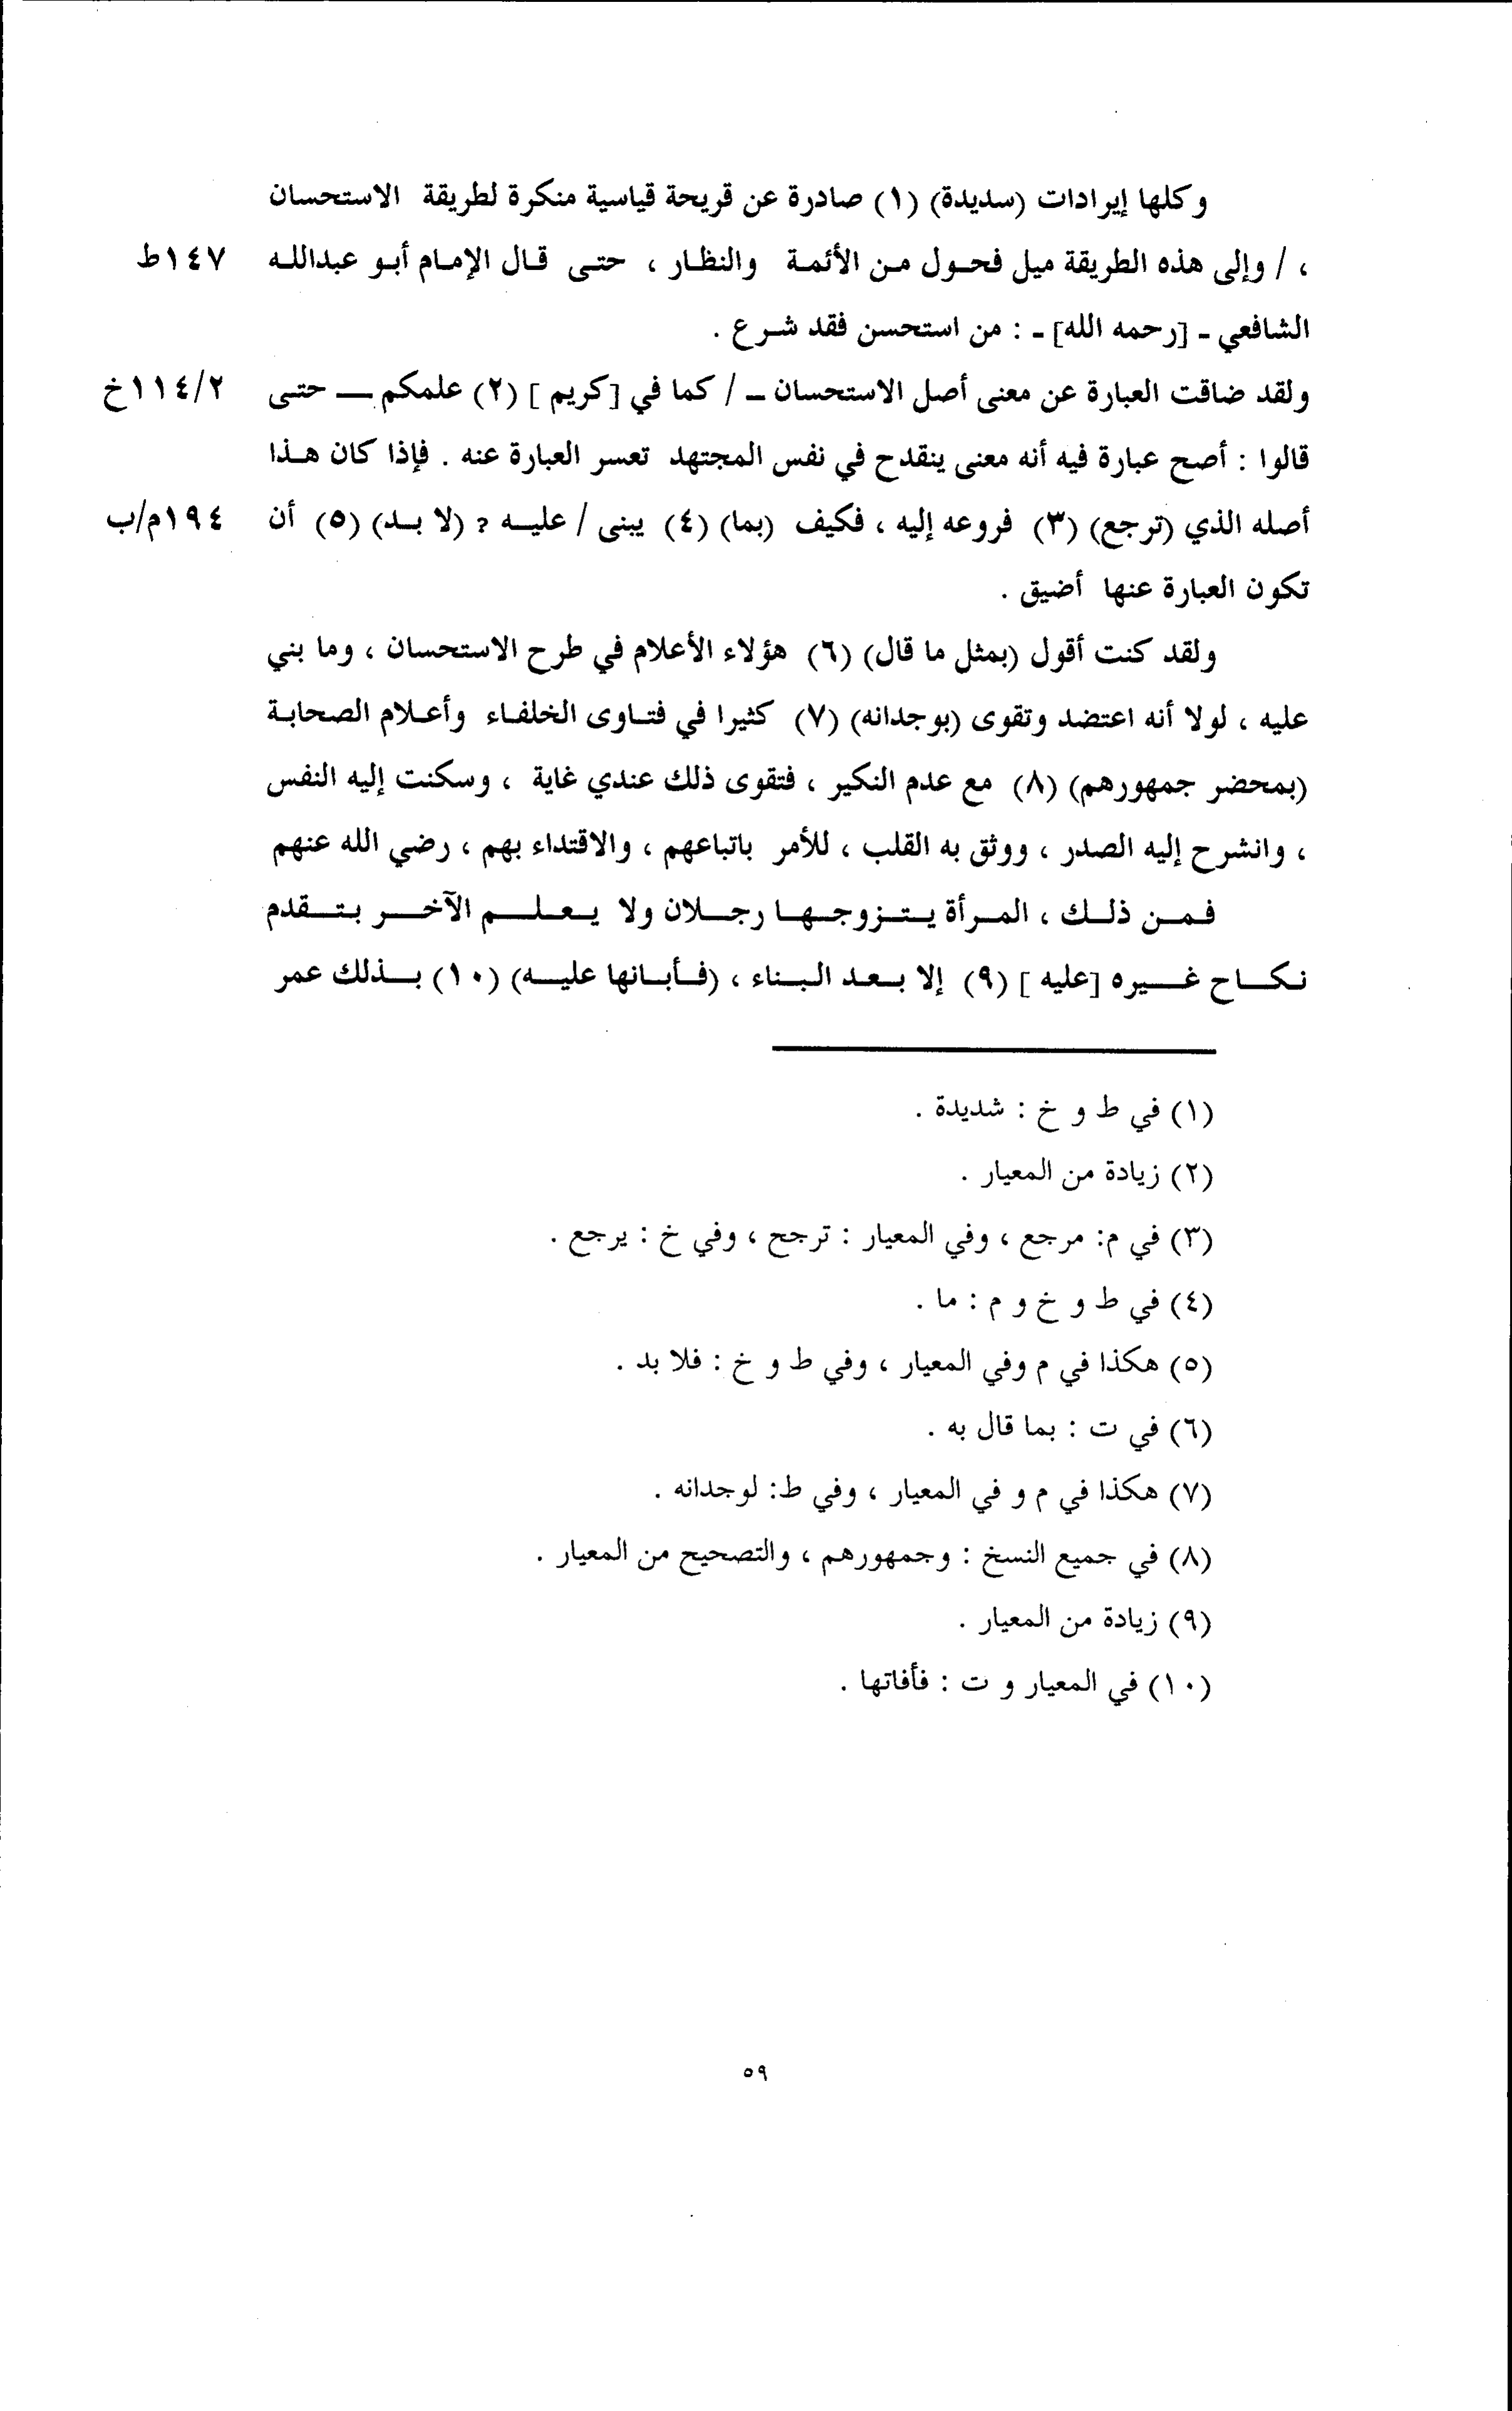 وكلها إيرادات (سديدة) (١) صادرة عن قريحة قياسية منكرة لطريقة الاستحسان
، / وإلى هذه الطريقة ميل فحول من الأئمة والنظار ، حتى قال الإمام أبو عبدالله ١٤٧ط
الشافعي ـ [رحمه الله] ـ : من استحسن فقد شرع .
ولقد ضاقت العبارة عن معنى أصل الاستحسان ـ / كما في [كريم ] (٢) علمكم ـ حتى ١١٤/٢خ
قالوا : أصح عبارة فيه أنه معنى ينقدح في نفس المجتهد تعسر العبارة عنه . فإذا كان هذا
أصله الذي (ترجع) (٣) فروعه إليه ، فكيف (بما) (٤) يبنى / عليه ؟ (لا بد) (٥) أن ١٩٤م/ب
تكون العبارة عنها أضيق .
ولقد كنت أقول (بمثل ما قال) (٦) هؤلاء الأعلام في طرح الاستحسان ، وما بني
عليه ، لولا أنه اعتضد وتقوى (بوجدانه) (٧) كثيرا في فتاوى الخلفاء وأعلام الصحابة
(بمحضر جمهورهم) (٨) مع عدم النكير ، فتقوى ذلك عندي غاية ، وسكنت إليه النفس
، وانشرح إليه الصدر ، ووثق به القلب ، للأمر باتباعهم ، والاقتداء بهم ، رضي الله عنهم
فمن ذلك ، المرأة يتزوجها رجلان ولا يعلم الآخر بتقدم
نكاح غيره [عليه ] (٩) إلا بعد البناء ، (فأبانها عليه) (١٠) بذلك عمر
(١) في ط و خ : شديدة .
(٢) زيادة من المعيار .
(٣) في م: مرجع ، وفي المعيار : ترجح ، وفي خ : يرجع .
(٤) في ط و خ و م : ما .
(٥) هكذا في م وفي المعيار ، وفي ط و خ : فلا بد .
(٦) في ت : بما قال به .
(٧) هكذا في م و في المعيار ، وفي ط: لوجدانه .
(٨) في جميع النسخ : وجمهورهم ، والتصحيح من المعيار .
(٩) زيادة من المعيار .
(١٠) في المعيار و ت : فأفاتها .
٥٩